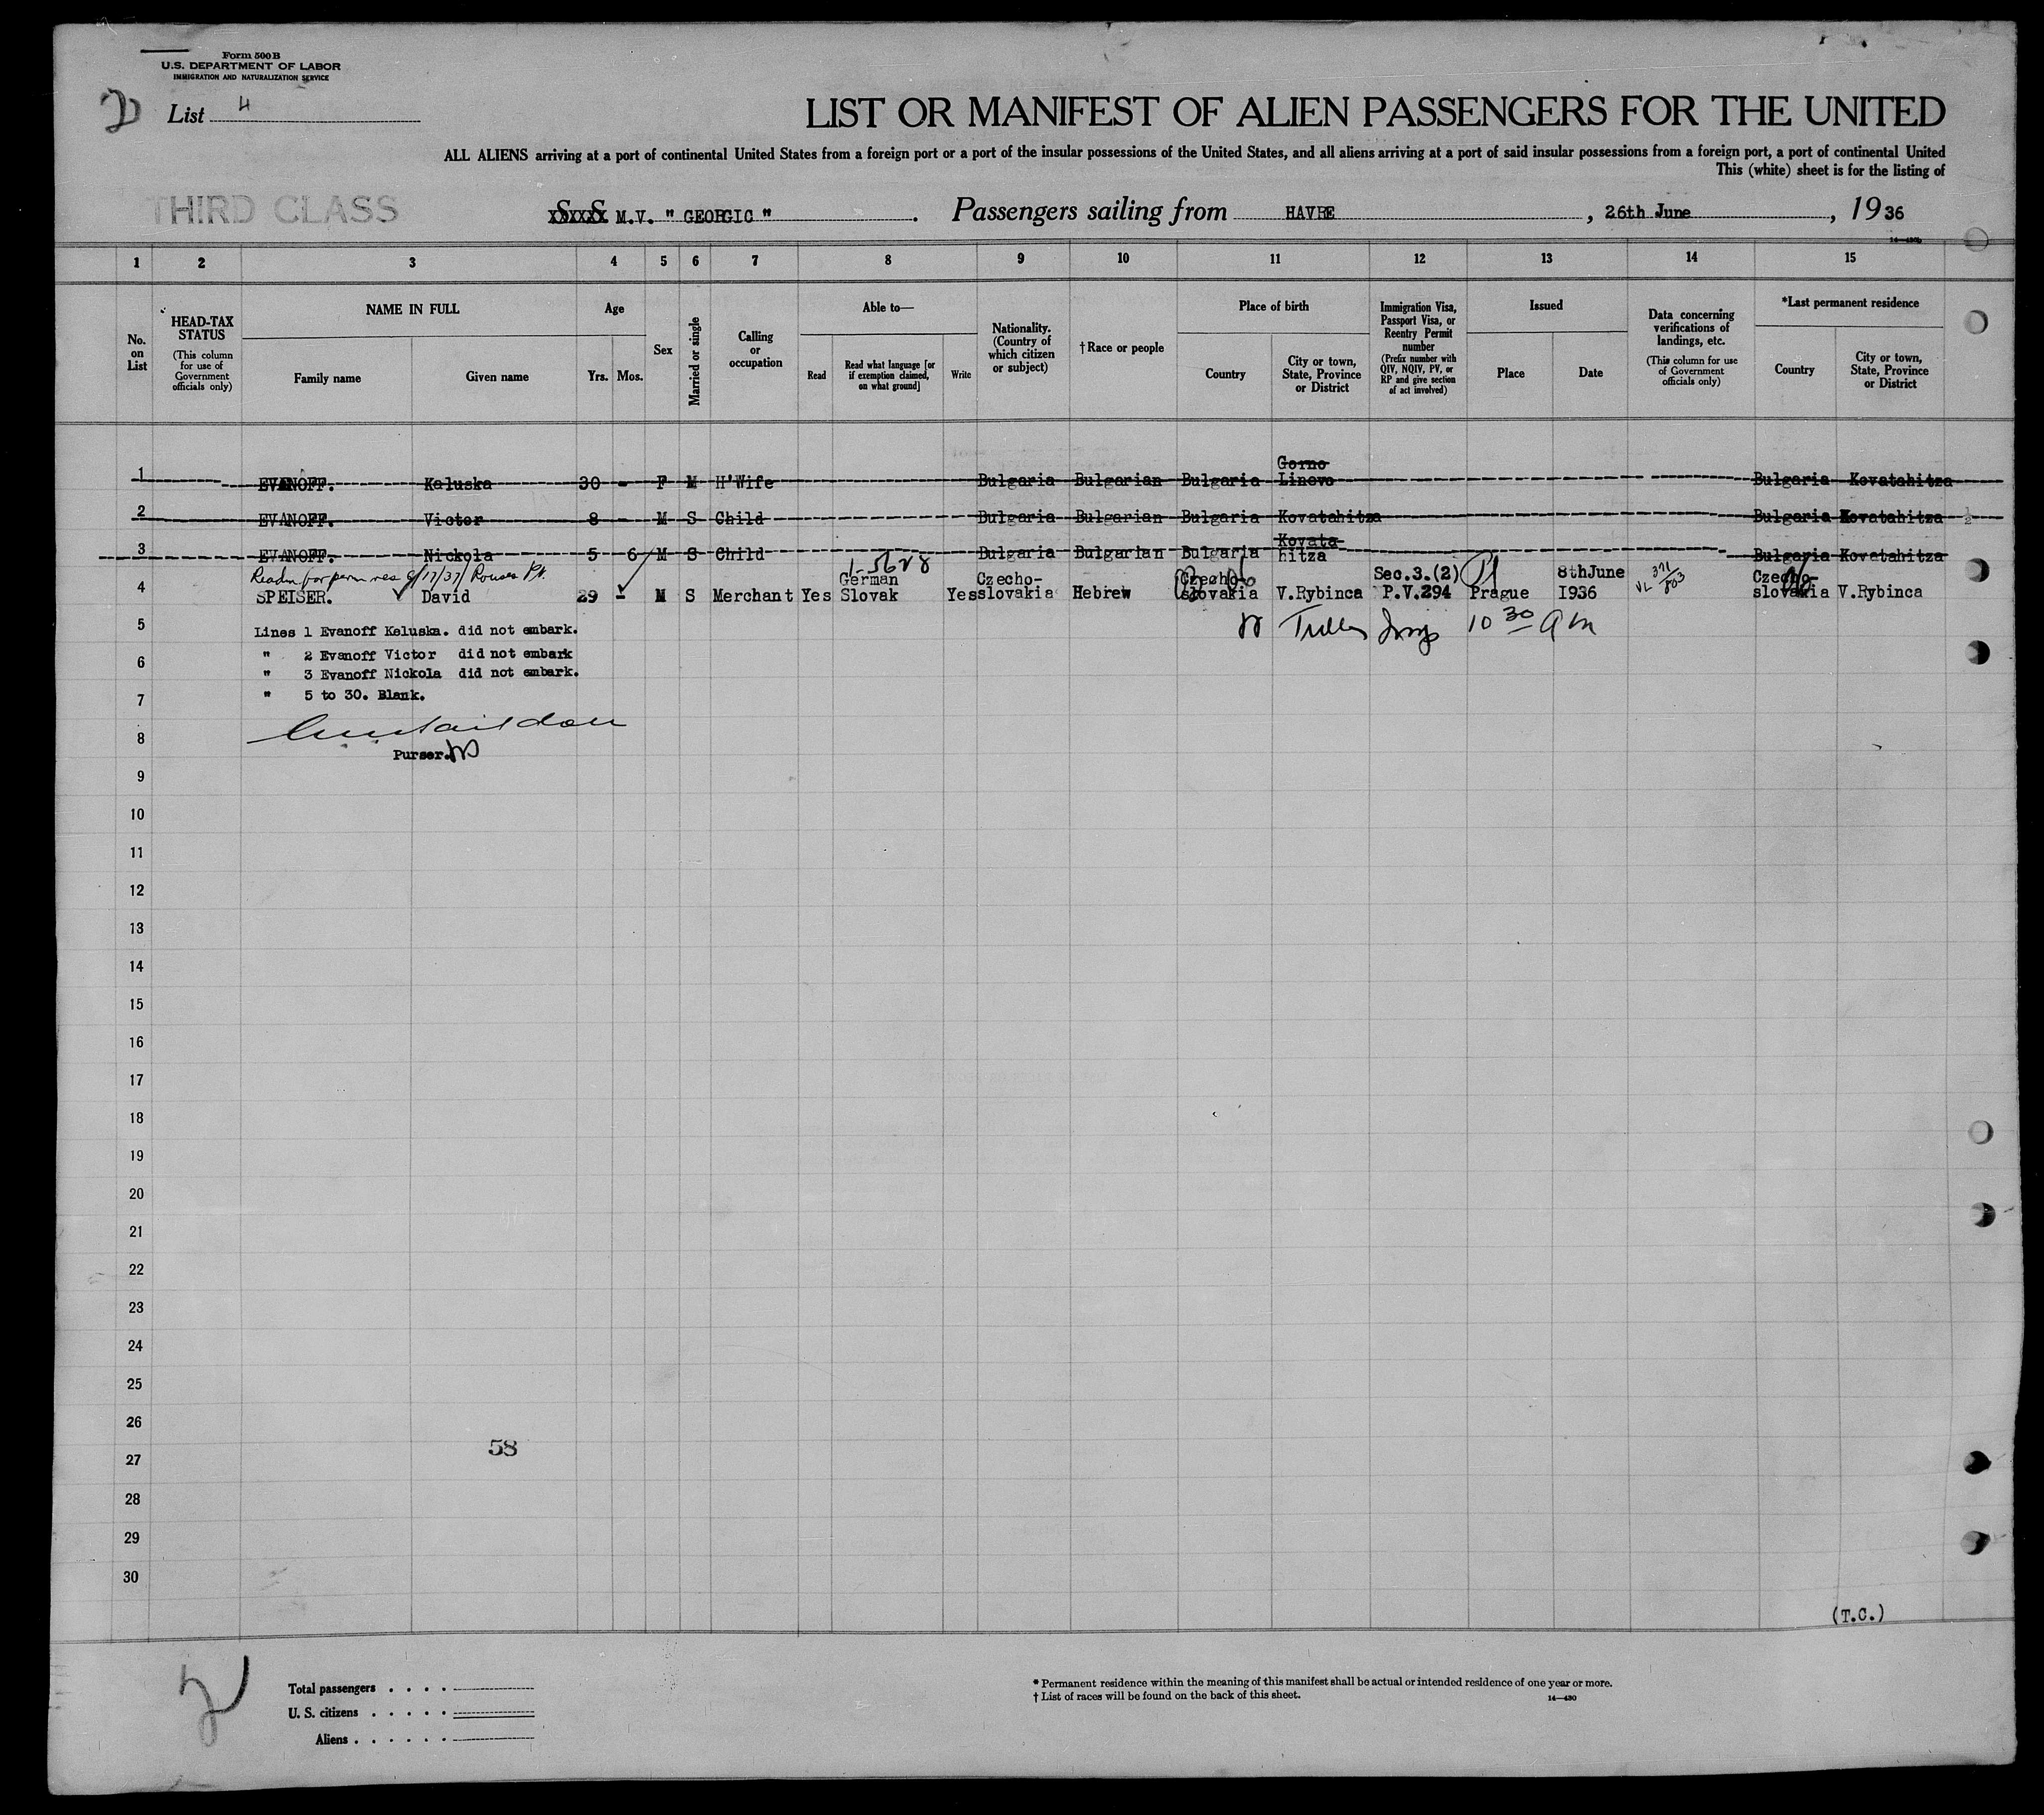 Form 500 B
U.S. DEPARTMENT OF LABOR
IMMIGRATION AND NATURALIZATION SERVICE
List 4
LIST OR MANIFEST OF ALIEN PASSENGERS FOR THE UNITED
ALL ALIENS arriving at a port of continental United States from a foreign port or a port of the insular possessions of the United States, and all aliens arriving at a port of said insular possessions from a foreign port, a port of continental United
This (white) sheet is for the listing of
THIRD CLASS
S. S. M.V. " GEORGIC " . Passengers sailing from HAVRE , 26th June , 1936
14—430b
1 2 3 4 5 6 7 8 9 10 11 12 13 14 15
No. on List
HEAD-TAX STATUS (This column for use of Government officials only)
NAME IN FULL
Family name Given name
Age
Yrs. Mos.
Sex
Married or single
Calling or occupation
Able to—
Read Read what language [or if exemption claimed, on what ground] Write
Nationality. (Country of which citizen or subject)
†Race or people
Place of birth
Country City or town, State, Province or District
Immigration Visa, Passport Visa, or Reentry Permit number (Prefix number with QIV, NQIV, PV, or RP and give section of act involved)
Issued
Place Date
Data concerning verifications of landings, etc. (This column for use of Government officials only)
*Last permanent residence
Country City or town, State, Province or District
1 EVANOFF. Keluska 30 - F M H'Wife Bulgaria Bulgarian Bulgaria Gorno Linovo Bulgaria Kovatahitza
2 EVANOFF. Victor 8 - M S Child Bulgaria Bulgarian Bulgaria Kovatahitza Bulgaria Kovatahitza
3 EVANOFF. Nickola 5 6 M S Child Bulgaria Bulgarian Bulgaria Kovata hitza Bulgaria Kovatahitza
Readm for perm res 9/17/37 Rouses Pt.
4 SPEISER. David 29 - M S Merchant Yes German Slovak Yes Czecho-slovakia Hebrew Czecho-slovakia V.Rybinca Sec.3.(2) P.V.294 Prague 8thJune I936 VL 371/803 Czecho-slovakia V.Rybinca
10 30 am
5
Lines 1 Evanoff Keluska. did not embark.
6
" 2 Evanoff Victor did not embark
" 3 Evanoff Nickola did not embark.
7
" 5 to 30. Blank.
8
Purser.
9
10
11
12
13
14
15
16
17
18
19
20
21
22
23
24
25
26
58
27
28
29
30
(T.C.)
Total passengers . . . .
U. S. citizens . . . . .
Aliens . . . . . .
* Permanent residence within the meaning of this manifest shall be actual or intended residence of one year or more.
† List of races will be found on the back of this sheet.
14—430